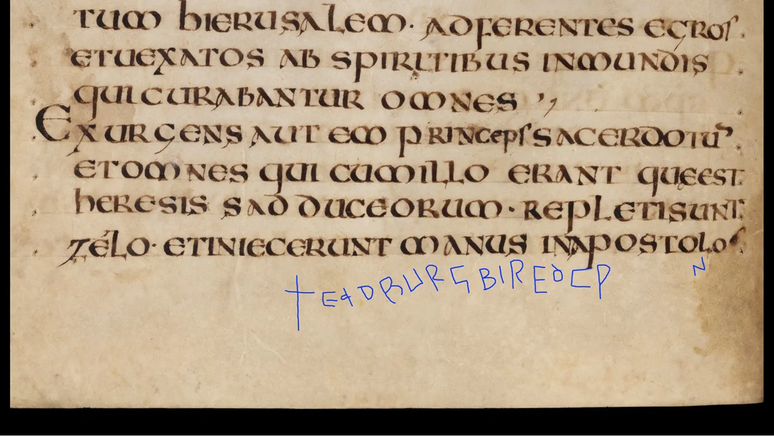 tum hierusalem· adferentes egros·
etuexatos ab spiritibus inmundis
quicurabantur omnes
Exurgens autem princeps sacerdotū
etomnes qui cumillo erant queest
heresis sadduceorum· repletisunt
zelo· etiniecerunt manus inapostolos
†EADBURGBIREðCP N